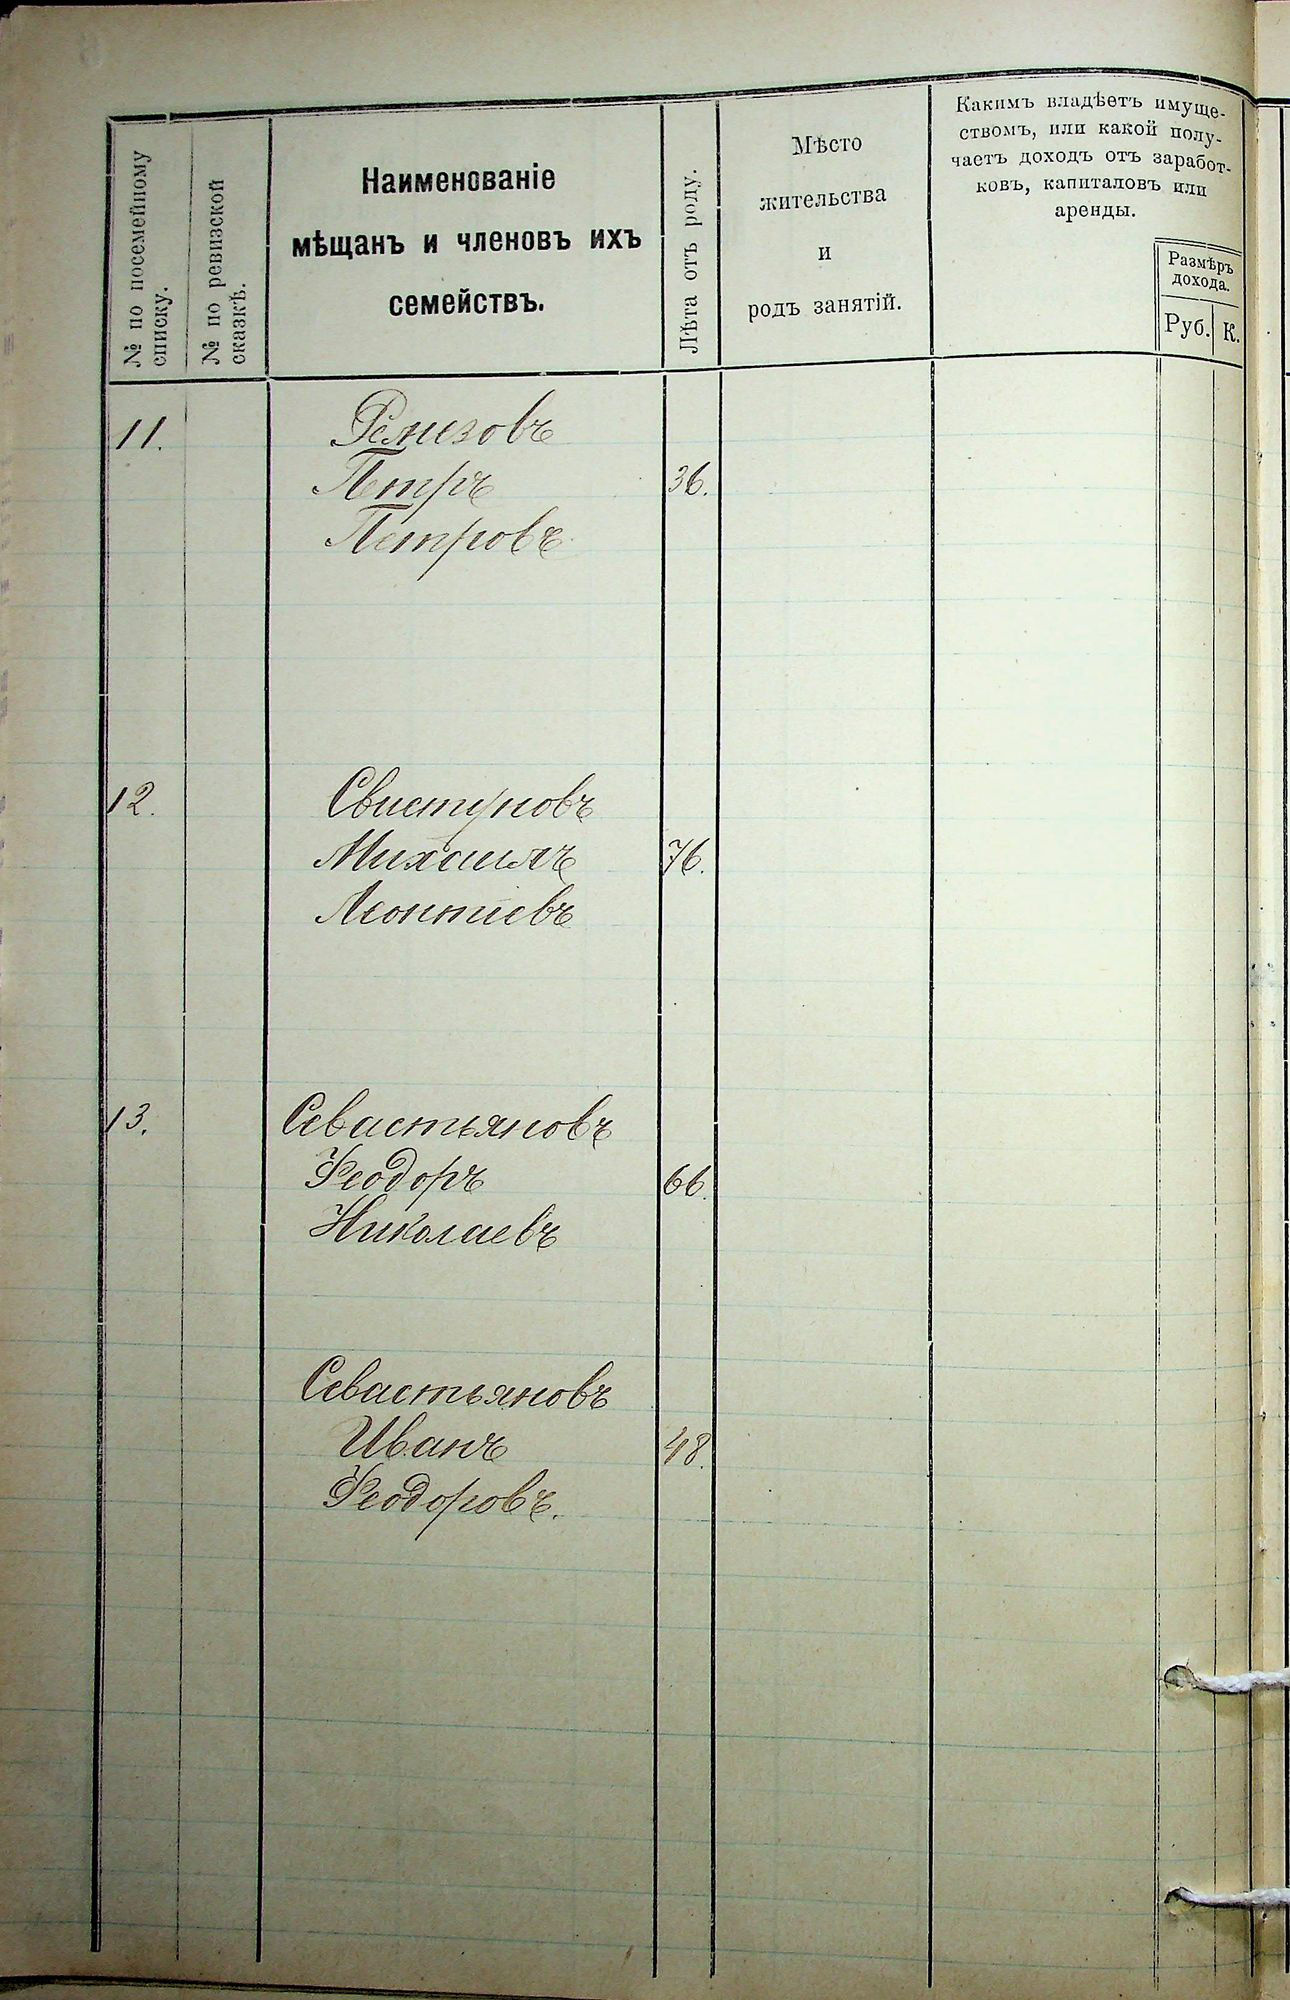 № по посемейному
списку.
№ по ревизской
сказкѣ.
Наименованіе
мѣщанъ и членовъ ихъ
семействъ.
Лѣта отъ роду.
Мѣсто
жительства
и
родъ занятій.
Какимъ владѣетъ имуще-
ствомъ, или какой полу-
чаетъ доходъ отъ заработ-
ковъ, капиталовъ или
аренды.
Размѣръ
дохода.
Руб. К.
11. Ремезовъ
Петръ 36.
Петровъ
12. Свистуновъ
Михаилъ 76.
Леонтіевъ
13. Севастьяновъ
Феодоръ 66.
Николаевъ
Севастьяновъ
Иванъ 48.
Феодоровъ.